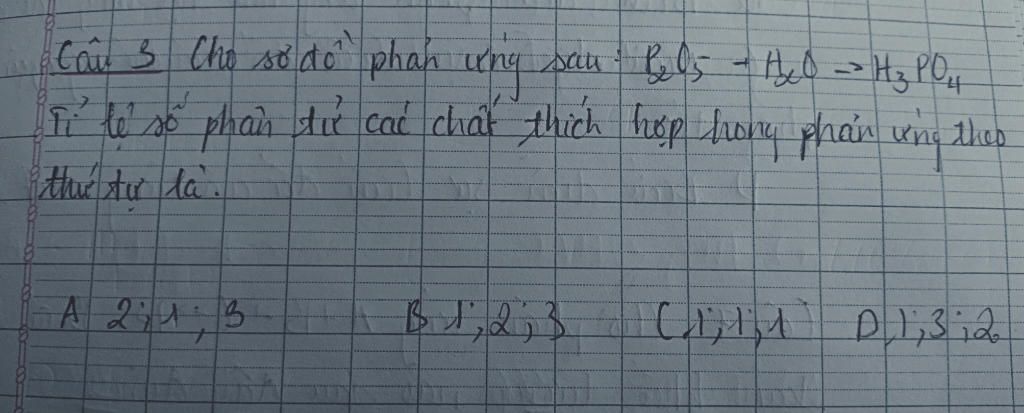 Câu 3 Cho sơ đồ phản ứng sau: P₂O₅ + H₂O → H₃PO₄
Tỉ lệ số phân tử các chất thích hợp trong phản ứng theo
thứ tự là.
A 2; 1; 3 B 1; 2; 3 C 1; 1; 1 D, 1; 3; 2